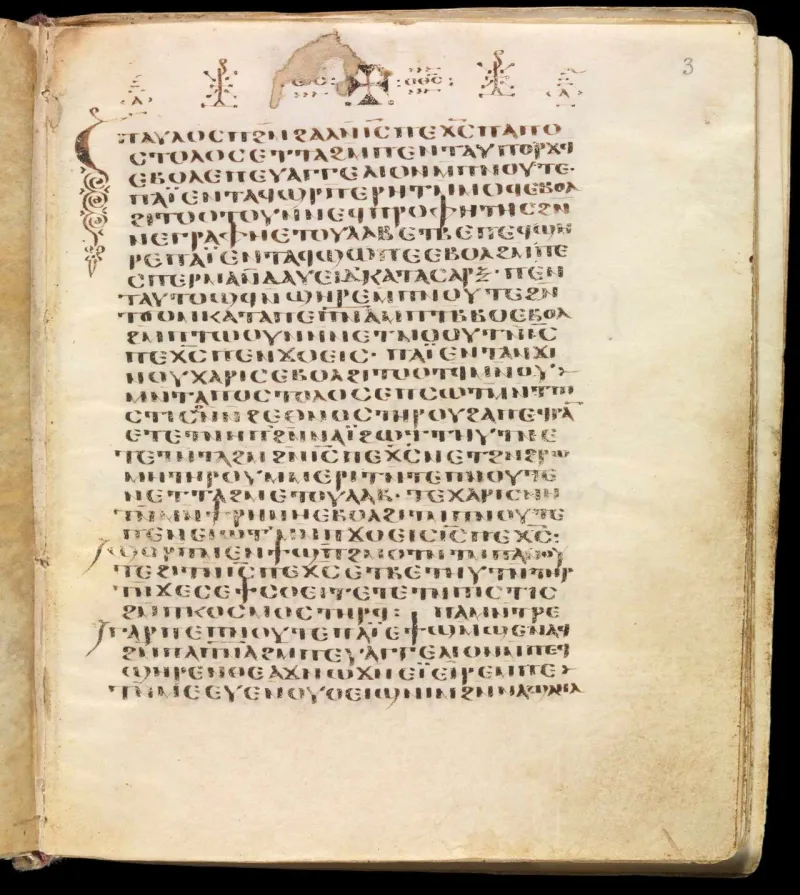 3
ⲡⲁⲩⲗⲟⲥⲡϩⲙϩⲁⲗⲛⲓ̅ⲥ̅ⲡⲉⲭ̅ⲥ̅ⲡⲁⲡⲟ
ⲥⲧⲟⲗⲟⲥⲉⲧⲧⲁϩⲙⲡⲉⲛⲧⲁⲩⲡⲟⲣϫϥ
ⲉⲃⲟⲗⲉⲡⲉⲩⲁⲅⲅⲉⲗⲓⲟⲛⲙⲡⲛⲟⲩⲧⲉ·
ⲡⲁⲓ̈ⲉⲛⲧⲁϥϣⲣⲡⲉⲣⲏⲧⲙⲙⲟϥⲉⲃⲟⲗ
ϩⲓⲧⲟⲟⲧⲟⲩⲛⲛⲉϥⲡⲣⲟⲫⲏⲧⲏⲥϩⲛ
ⲛⲉⲅⲣⲁⲫⲏⲉⲧⲟⲩⲁⲁⲃⲉⲧⲃⲉⲡⲉϥϣⲏ
ⲣⲉⲡⲁⲓ̈ⲉⲛⲧⲁϥϣⲱⲡⲉⲉⲃⲟⲗϩⲙⲡⲉ
ⲥⲡⲉⲣⲙⲁⲛ̅ⲇⲁⲩⲉⲓⲇⲕⲁⲧⲁⲥⲁⲣⲝ· ⲡⲉⲛ
ⲧⲁⲩⲧⲟϣϥⲛϣⲏⲣⲉⲙⲡⲛⲟⲩⲧⲉϩⲛ
ⲧϭⲟⲙⲕⲁⲧⲁⲡⲉⲡ̅ⲛ̅ⲁ̅ⲙⲡⲧⲃⲃⲟⲉⲃⲟⲗ
ϩⲙⲡⲧⲱⲟⲩⲛⲛⲛⲉⲧⲙⲟⲟⲩⲧⲛⲓ̅ⲥ̅
ⲡⲉⲭ̅ⲥ̅ⲡⲉⲛϫⲟⲉⲓⲥ· ⲡⲁⲓ̈ⲉⲛⲧⲁⲛϫⲓ
ⲛⲟⲩⲭⲁⲣⲓⲥⲉⲃⲟⲗϩⲓⲧⲟⲟⲧϥⲙⲛⲟⲩ>
ⲙⲛⲧⲁⲡⲟⲥⲧⲟⲗⲟⲥⲉⲡⲥⲱⲧⲙⲛⲧⲡⲓ
ⲥⲧⲓⲥϩⲛⲛϩⲉⲑⲛⲟⲥⲧⲏⲣⲟⲩϩⲁⲡⲉϥⲣⲁⲛ
ⲉⲧⲉⲧⲛⲏⲡϩⲛⲛⲁⲓ̈ϩⲱⲧⲧⲏⲩⲧⲛⲉ
ⲧⲉⲧⲛⲧⲁϩⲙϩⲛⲓ̅ⲥ̅ⲡⲉⲭ̅ⲥ̅ⲛⲉⲧϩⲛϩⲣⲱ
ⲙⲏⲧⲏⲣⲟⲩⲙⲙⲉⲣⲓⲧⲛⲧⲉⲡⲛⲟⲩⲧⲉ
ⲛⲉⲧⲧⲁϩⲙⲉⲧⲟⲩⲁⲁⲃ· ⲧⲉⲭⲁⲣⲓⲥⲛⲏ
ⲧⲛⲙⲛϯⲣⲏⲛⲏⲉⲃⲟⲗϩⲓⲧⲙⲡⲛⲟⲩⲧⲉ
ⲡⲉⲛⲉⲓⲱⲧⲙⲛⲡϫⲟⲉⲓⲥⲓ̅ⲥ̅ⲡⲉⲭ̅ⲥ̅:
ϣⲟⲣⲡⲙⲉⲛϯϣⲡϩⲙⲟⲧⲛⲧⲙⲡⲁⲛⲟⲩ
ⲧⲉϩⲓⲧⲛⲓ̅ⲥ̅ⲡⲉⲭ̅ⲥ̅ⲉⲧⲃⲉⲧⲏⲩⲧⲛⲧⲏⲣ
ⲧⲛϫⲉⲥⲉϯⲥⲟⲉⲓⲧⲉⲧⲉⲧⲛⲡⲓⲥⲧⲓⲥ
ϩⲙⲡⲕⲟⲥⲙⲟⲥⲧⲏⲣϥ: ⲡⲁⲙⲛⲧⲣⲉ
ⲅⲁⲣⲡⲉⲡⲛⲟⲩⲧⲉⲡⲁⲓ̈ⲉϯϣⲙϣⲉⲛⲁϥ
ϩⲙⲡⲁⲡ̅ⲛ̅ⲁ̅ϩⲙⲡⲉⲩⲁⲅⲅⲉⲗⲓⲟⲛⲙⲡⲉϥ
ϣⲏⲣⲉⲛⲑⲉⲁϫⲛⲱϫⲛⲉⲓ̈ⲉⲓⲣⲉⲙⲡⲉ>
ⲧⲛⲙⲉⲉⲩⲉⲛⲟⲩⲟⲉⲓϣⲛⲓⲙϩⲛⲛⲁϣⲗⲏⲗ